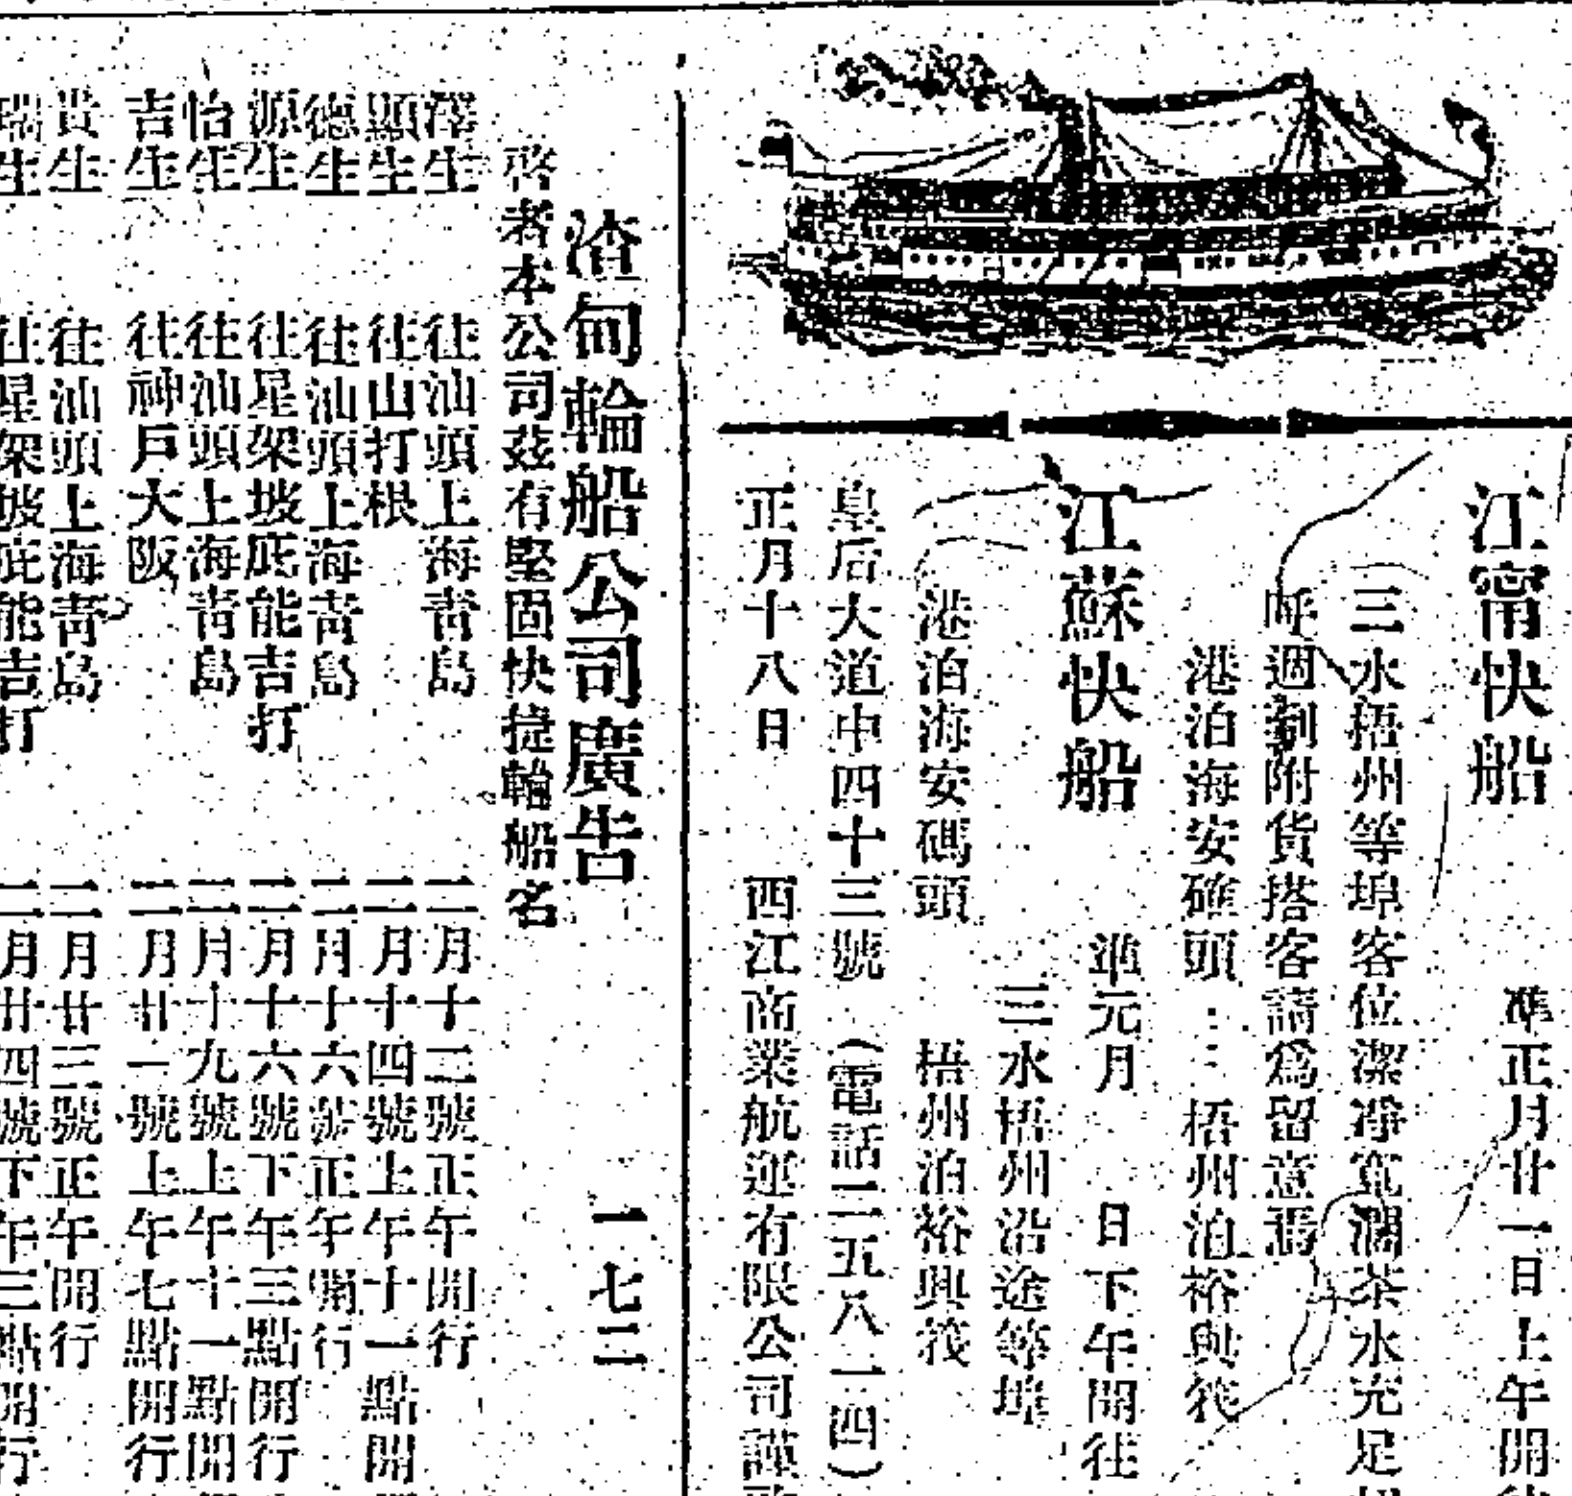 江甯快船
準正月廿一日上午開
三水梧州等埠客位潔凈寬濶茶水充足
呼週剳附貨搭客請爲留意焉
港泊海安碼頭 梧州泊裕興筏
江蘇快船
準元月 日下午開往
三水梧州沿途等埠
港泊海安碼頭 梧州泊裕興筏
皇后大道中四十三號 (電話二五八一四)
正月十八日 西江商業航運有限公司謹
渣甸輪船公司廣告 一七二
啓者本公司茲有堅固快捷輪船名
澤生 往汕頭上海靑島 二月十二號正午開行
顯生 往山打根 二月十四號上午十一點開
德生 往汕頭上海靑島 二月十六號正午開行
源生 往星架坡庇能吉打 二月十六號下午三點開行
怡生 往汕頭上海靑島 二月十九號上午十一點開
吉生 往神戶大阪 二月廿一號上午七點開行
貴生 往汕頭上海靑島 二月廿三號正午開行
瑞生 往星架坡庇能吉打 二月廿四號下午三點開行